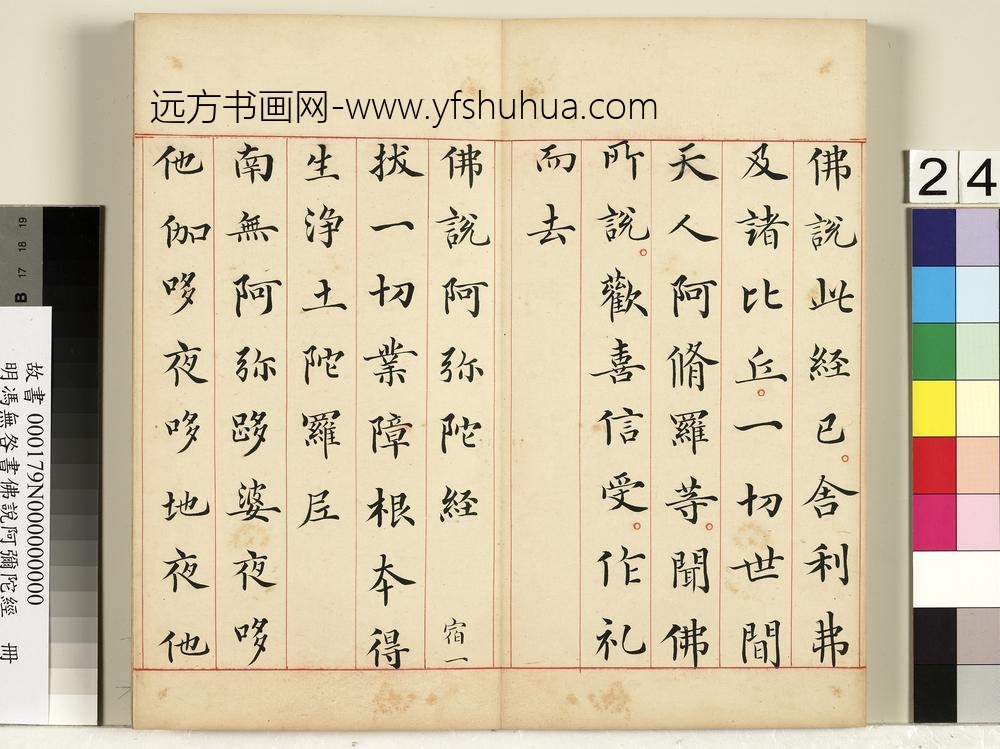 远方书画网-www.yfshuhua.com
佛說此經已舍利弗
及諸比丘一切世間
天人阿脩羅等聞佛
所說歡喜信受作礼
而去
佛說阿弥陀経
宿一
拔一切業障根本得
生淨土陀羅尼
南無阿弥哆婆夜哆
他伽哆夜哆地夜他
24
B 17 18 19
故書 000179N000000000
明馮無咎書佛說阿彌陀經 冊